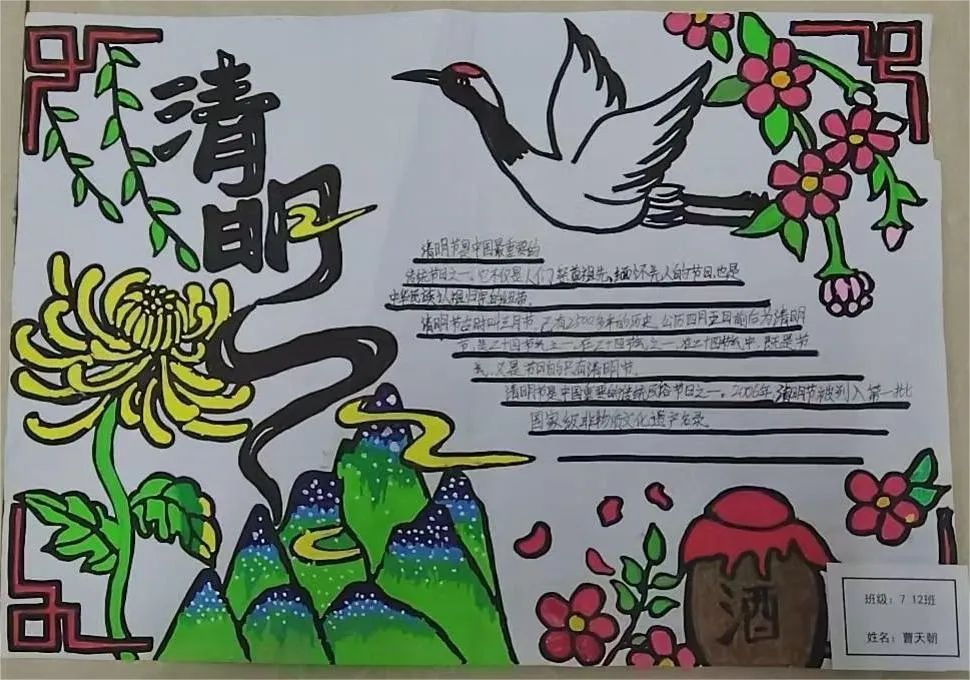 清明
清明节是中国最重要的
传统节日之一。它不仅是人们祭奠祖先、缅怀先人的节日,也是
中华民族认祖归宗的纽带。
清明节古时叫三月节,已有2500多年的历史。公历四月五日前后为清明
节,是二十四节气之一。在二十四节气之一。在二十四节气中,既是节
气,又是节日的只有清明节。
清明节是中国重要的传统风俗节日之一。2006年,清明节被列入第一批
国家级非物质文化遗产名录
酒
班级:7 12班
姓名:曹天朝